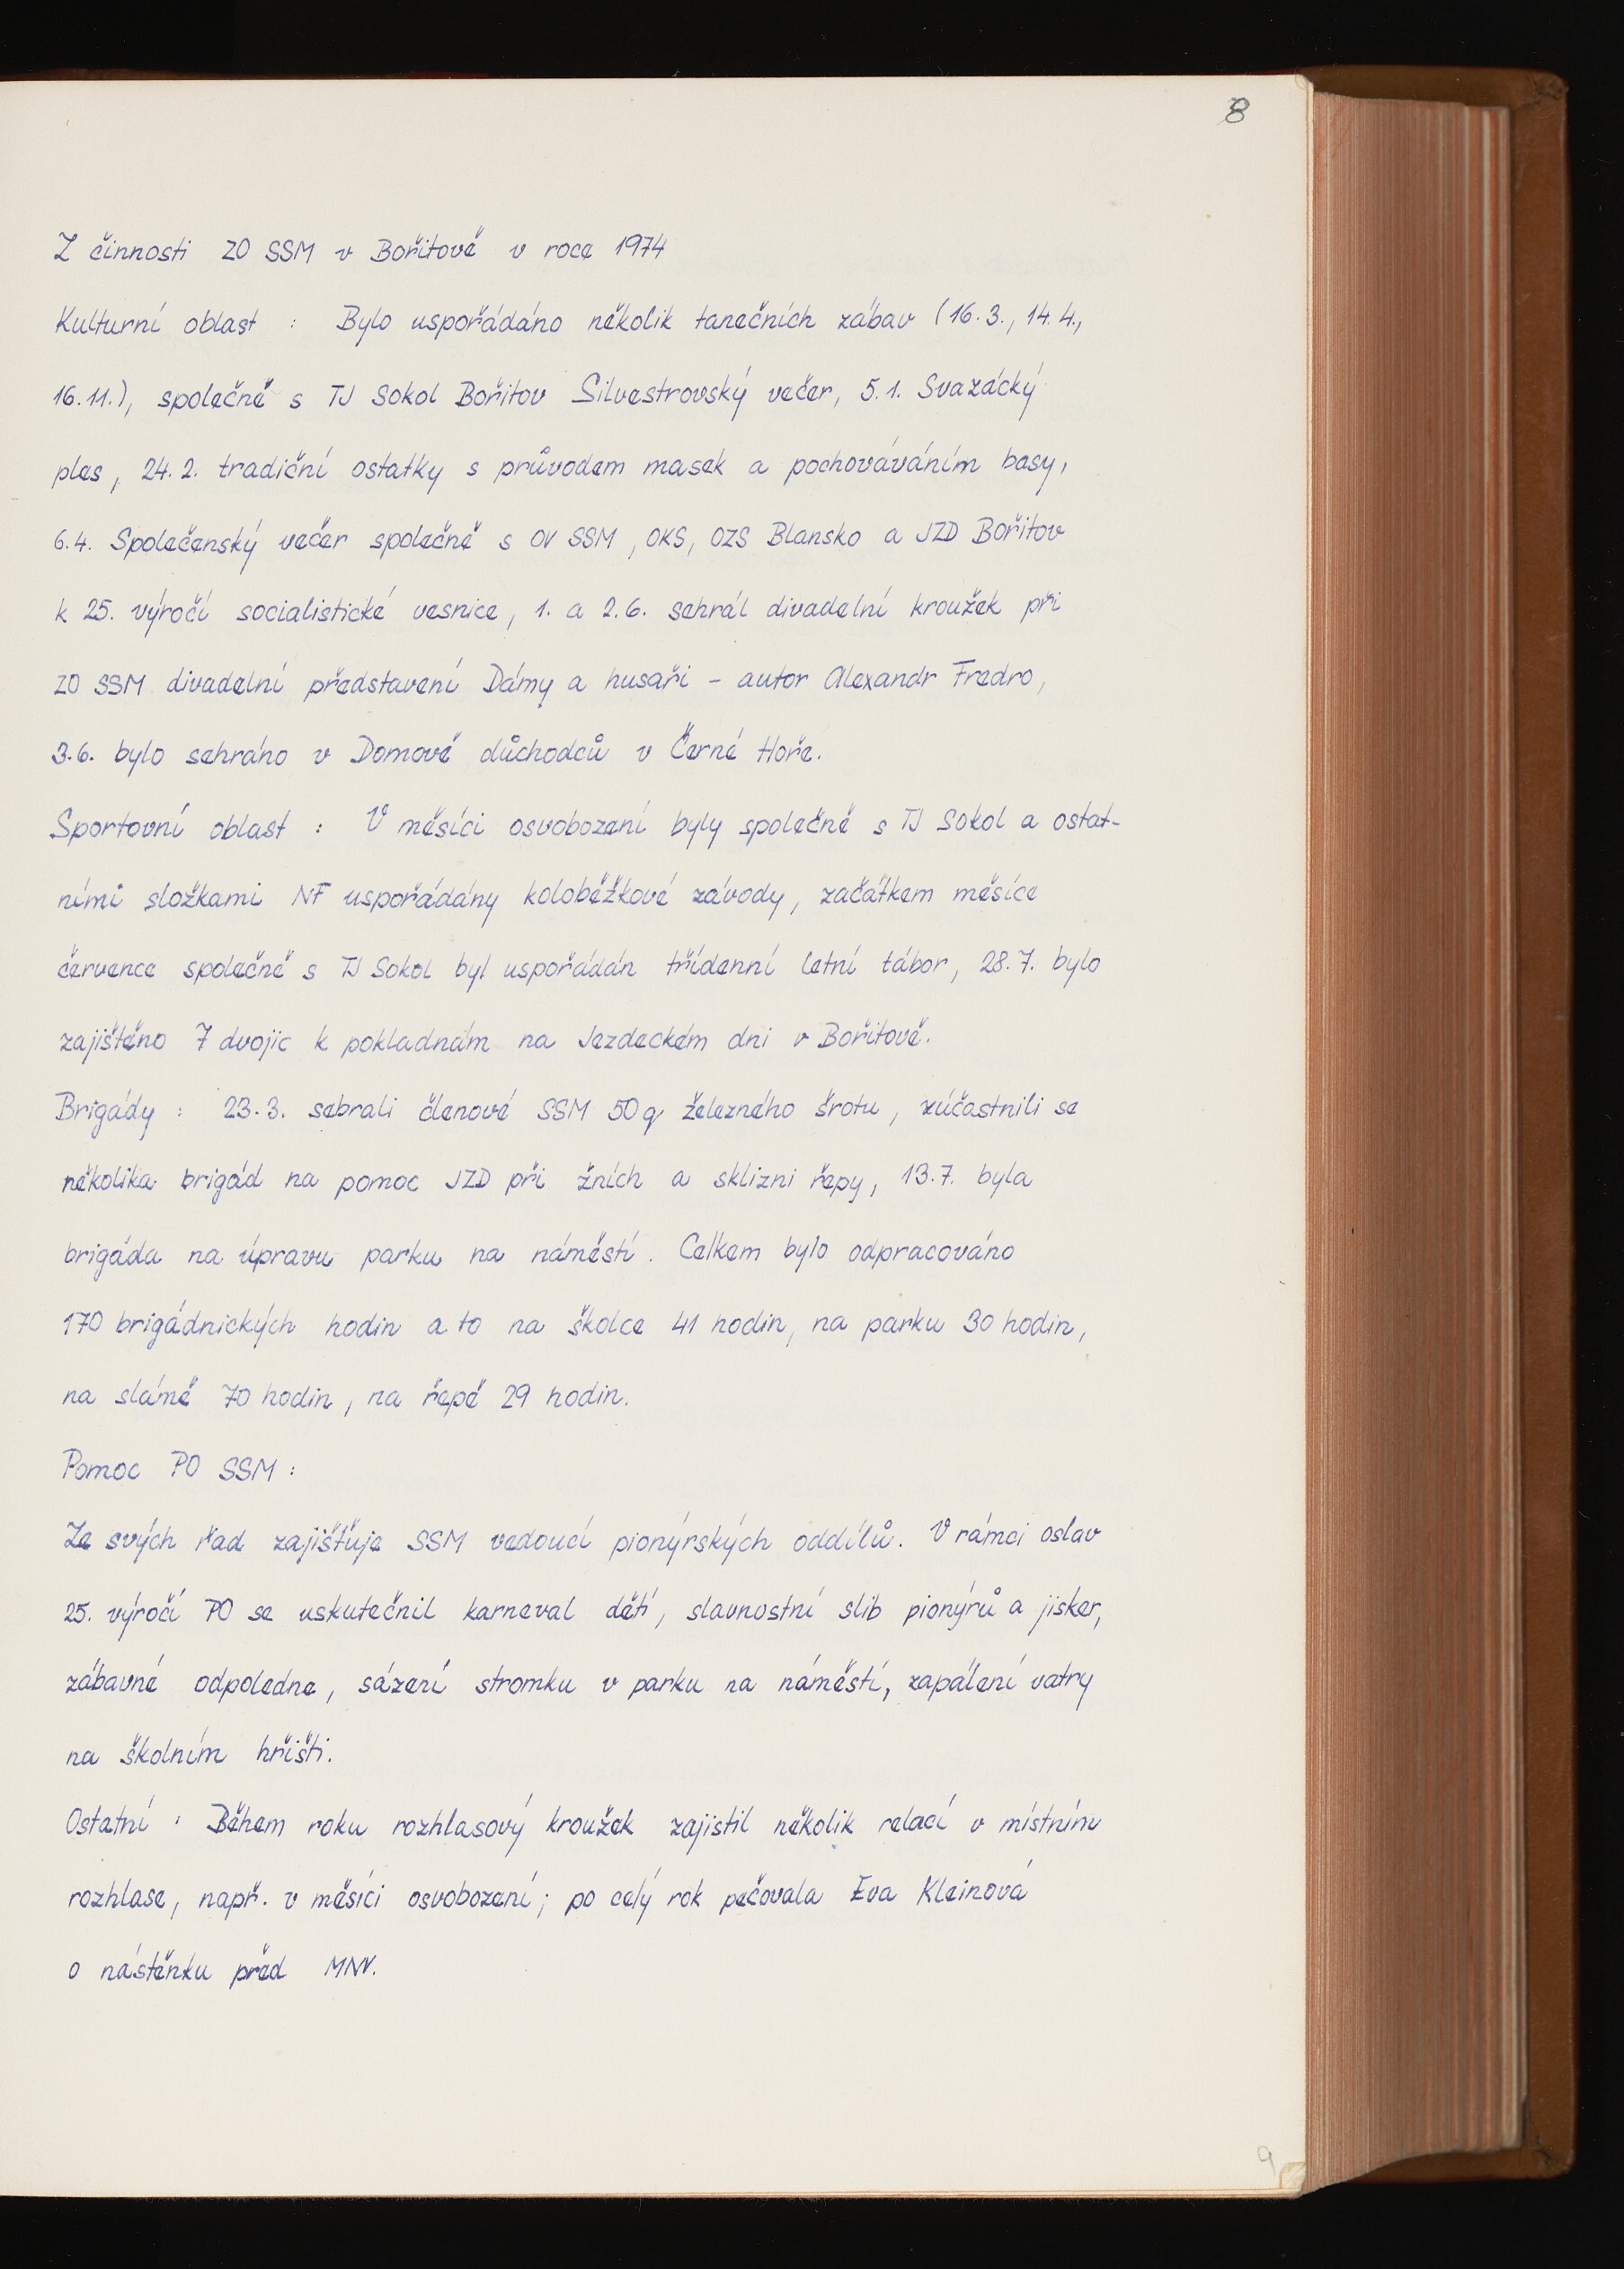 8
Z činnosti ZO SSM v Bořitově v roce 1974
Kulturní oblast : Bylo uspořádáno několik tanečních zábav (16.3., 14.4.,
16.11.), společně s TJ Sokol Bořitov Silvestrovský večer, 5.1. Svazácký
ples, 24.2. tradiční ostatky s průvodem masek a pochováváním basy,
6.4. Společenský večer společně s OV SSM, OKS, OZS Blansko a JZD Bořitov
k 25. výročí socialistické vesnice, 1. a 2.6. sehrál divadelní kroužek při
ZO SSM divadelní představení Dámy a husaři - autor Alexandr Fredro,
3.6. bylo sehráno v Domově důchodců v Černé Hoře.
Sportovní oblast : V měsíci osvobození byly společně s TJ Sokol a ostat-
ními složkami NF uspořádány koloběžkové závody, začátkem měsíce
července společně s TJ Sokol byl uspořádán třídenní letní tábor, 28.7. bylo
zajištěno 7 dvojic k pokladnám na Jezdeckém dni v Bořitově.
Brigády : 23.3. sebrali členové SSM 50 q železného šrotu, zúčastnili se
několika brigád na pomoc JZD při žních a sklizni řepy, 13.7. byla
brigáda na úpravu parku na náměstí. Celkem bylo odpracováno
170 brigádnických hodin a to na školce 41 hodin, na parku 30 hodin,
na slámě 70 hodin, na řepě 29 hodin.
Pomoc PO SSM :
Ze svých řad zajišťuje SSM vedoucí pionýrských oddílů. V rámci oslav
25. výročí PO se uskutečnil karneval dětí, slavnostní slib pionýrů a jisker,
zábavné odpoledne, sázení stromku v parku na náměstí, zapálení vatry
na školním hřišti.
Ostatní : Během roku rozhlasový kroužek zajistil několik relací v místním
rozhlase, např. v měsíci osvobození; po celý rok pečovala Eva Kleinová
o nástěnku před MNV.
9